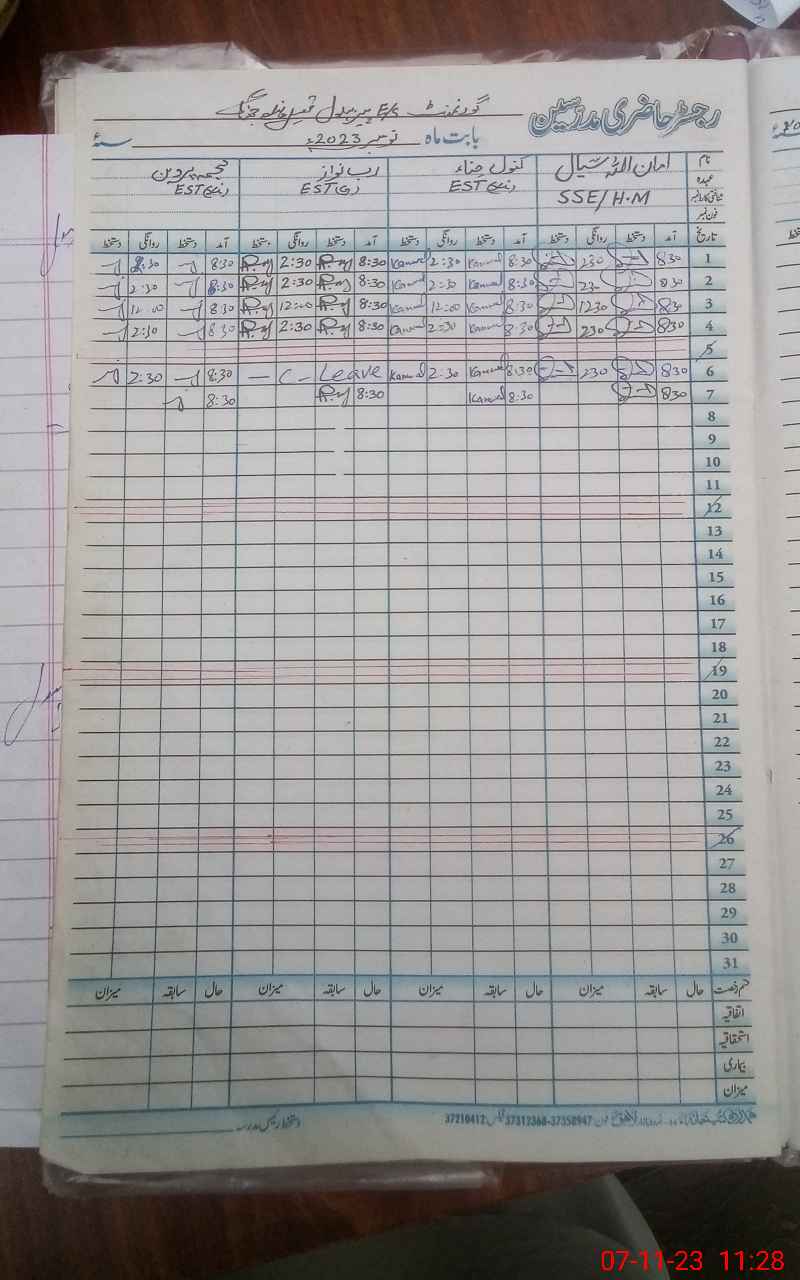 رجسٹر حاضری مدرسین گورنمنٹ E/S
بابت ماہ نومبر 2023ء سنہ ء
نام امان اللہ سیال کنول حناء رب نواز نجمہ پروین
عہدہ SSE/H.M EST EST EST
شناختی کارڈ نمبر
فون نمبر
تاریخ آمد دستخط روانگی دستخط آمد دستخط روانگی دستخط آمد دستخط روانگی دستخط آمد دستخط روانگی دستخط
1 830 230 8:30 Kanwal 2:30 Kanwal 8:30 2:30 8:30 2:30
2 830 230 8:30 Kanwal 2:30 Kanwal 8:30 2:30 8:30 2:30
3 830 1230 8:30 Kanwal 12:00 Kanwal 8:30 12:00 8:30 12:00
4 830 230 8:30 Kanwal 2:30 Kanwal 8:30 2:30 8:30 2:30
5
6 830 230 8:30 Kanwal 2:30 Kanwal — C - Leave 8:30 2:30
7 830 8:30 Kanwal 8:30 8:30
8
9
10
11
12
13
14
15
16
17
18
19
20
21
22
23
24
25
26
27
28
29
30
31
قسم رخصت حال سابقہ میزان حال سابقہ میزان حال سابقہ میزان حال سابقہ میزان
اتفاقیہ
استحقاقیہ
بیماری
میزان
37312368-37350947 37210412 دستخط رئیس مدرسہ
07-11-23 11:28